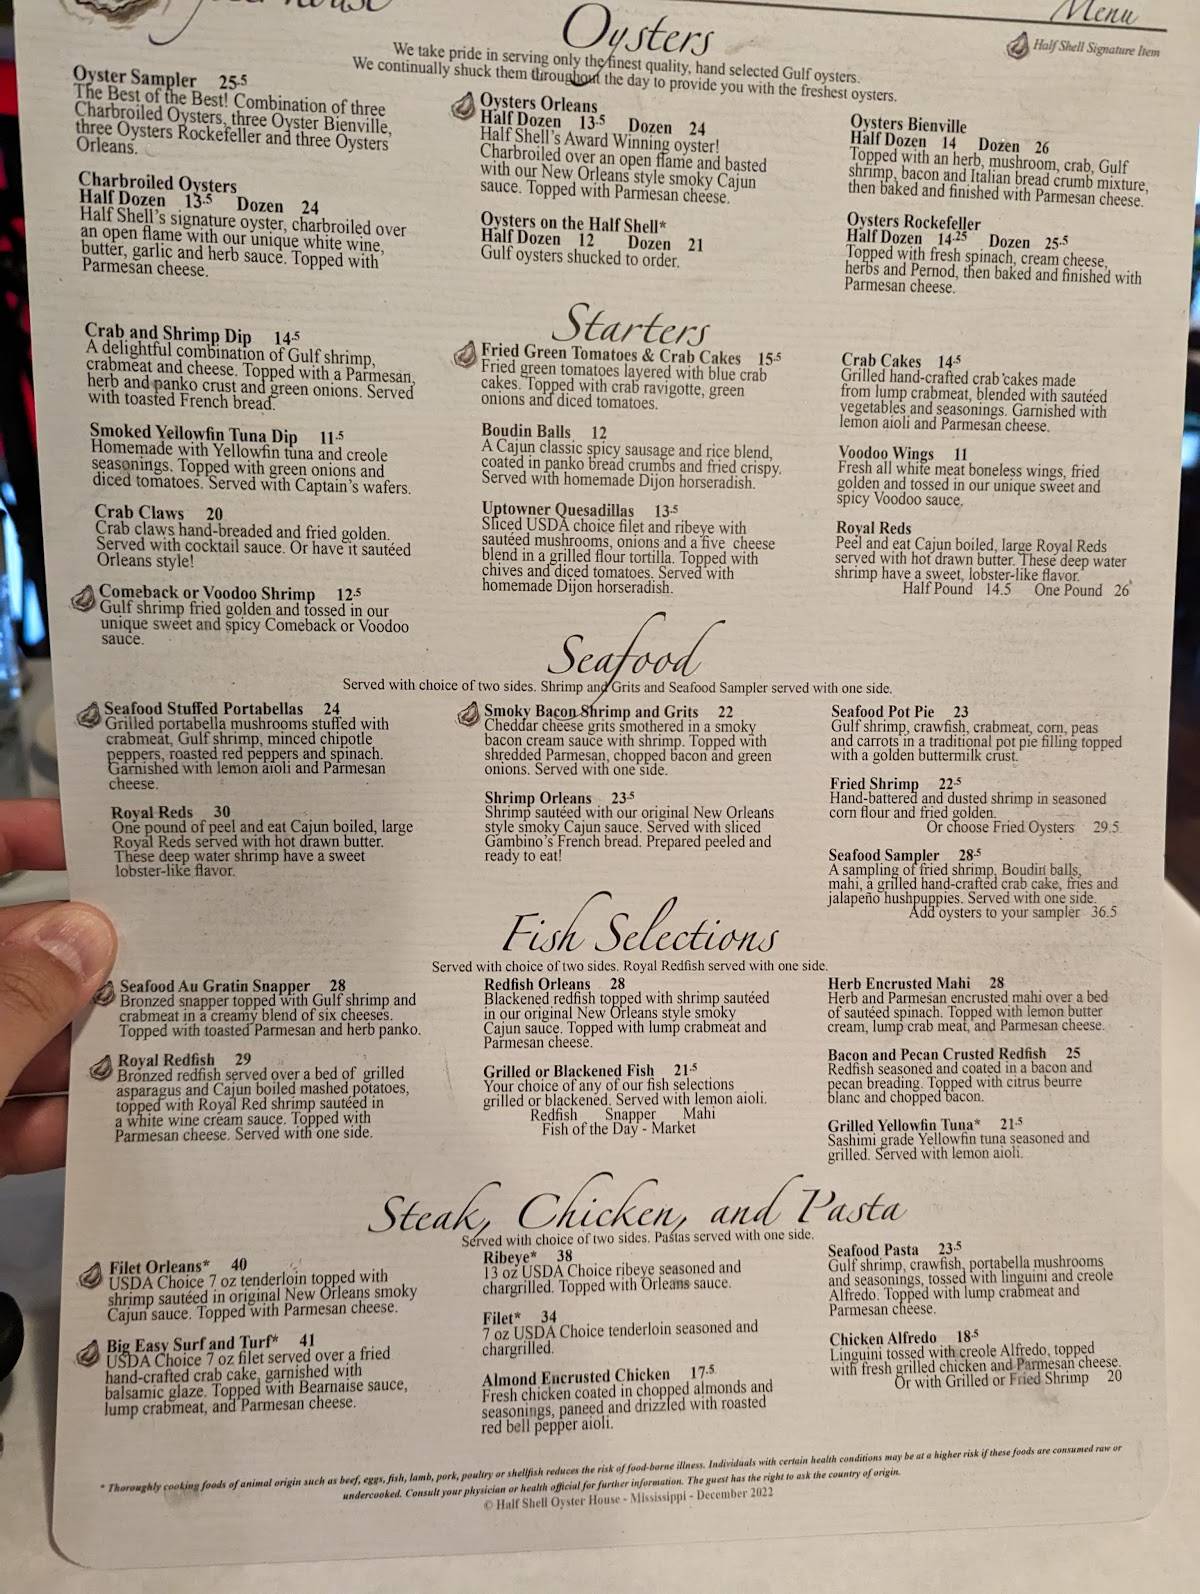 House
Menu
Half Shell Signature Item
Oysters
We take pride in serving only the finest quality, hand selected Gulf oysters.
We continually shuck them throughout the day to provide you with the freshest oysters.
Oyster Sampler 25.5
The Best of the Best! Combination of three
Charbroiled Oysters, three Oyster Bienville,
three Oysters Rockefeller and three Oysters
Orleans.
Charbroiled Oysters
Half Dozen 13.5 Dozen 24
Half Shell's signature oyster, charbroiled over
an open flame with our unique white wine,
butter, garlic and herb sauce. Topped with
Parmesan cheese.
Oysters Orleans
Half Dozen 13.5 Dozen 24
Half Shell's Award Winning oyster!
Charbroiled over an open flame and basted
with our New Orleans style smoky Cajun
sauce. Topped with Parmesan cheese.
Oysters on the Half Shell*
Half Dozen 12 Dozen 21
Gulf oysters shucked to order.
Oysters Bienville
Half Dozen 14 Dozen 26
Topped with an herb, mushroom, crab, Gulf
shrimp, bacon and Italian bread crumb mixture,
then baked and finished with Parmesan cheese.
Oysters Rockefeller
Half Dozen 14.25 Dozen 25.5
Topped with fresh spinach, cream cheese,
herbs and Pernod, then baked and finished with
Parmesan cheese.
Starters
Crab and Shrimp Dip 14.5
A delightful combination of Gulf shrimp,
crabmeat and cheese. Topped with a Parmesan,
herb and panko crust and green onions. Served
with toasted French bread.
Smoked Yellowfin Tuna Dip 11.5
Homemade with Yellowfin tuna and creole
seasonings. Topped with green onions and
diced tomatoes. Served with Captain's wafers.
Crab Claws 20
Crab claws hand-breaded and fried golden.
Served with cocktail sauce. Or have it sautéed
Orleans style!
Comeback or Voodoo Shrimp 12.5
Gulf shrimp fried golden and tossed in our
unique sweet and spicy Comeback or Voodoo
sauce.
Fried Green Tomatoes & Crab Cakes 15.5
Fried green tomatoes layered with blue crab
cakes. Topped with crab ravigotte, green
onions and diced tomatoes.
Boudin Balls 12
A Cajun classic spicy sausage and rice blend,
coated in panko bread crumbs and fried crispy.
Served with homemade Dijon horseradish.
Uptowner Quesadillas 13.5
Sliced USDA choice filet and ribeye with
sautéed mushrooms, onions and a five cheese
blend in a grilled flour tortilla. Topped with
chives and diced tomatoes. Served with
homemade Dijon horseradish.
Crab Cakes 14.5
Grilled hand-crafted crab cakes made
from lump crabmeat, blended with sautéed
vegetables and seasonings. Garnished with
lemon aioli and Parmesan cheese.
Voodoo Wings 11
Fresh all white meat boneless wings, fried
golden and tossed in our unique sweet and
spicy Voodoo sauce.
Royal Reds
Peel and eat Cajun boiled, large Royal Reds
served with hot drawn butter. These deep water
shrimp have a sweet, lobster-like flavor.
Half Pound 14.5 One Pound 26
Seafood
Served with choice of two sides. Shrimp and Grits and Seafood Sampler served with one side.
Seafood Stuffed Portabellas 24
Grilled portabella mushrooms stuffed with
crabmeat, Gulf shrimp, minced chipotle
peppers, roasted red peppers and spinach.
Garnished with lemon aioli and Parmesan
cheese.
Royal Reds 30
One pound of peel and eat Cajun boiled, large
Royal Reds served with hot drawn butter.
These deep water shrimp have a sweet
lobster-like flavor.
Smoky Bacon Shrimp and Grits 22
Cheddar cheese grits smothered in a smoky
bacon cream sauce with shrimp. Topped with
shredded Parmesan, chopped bacon and green
onions. Served with one side.
Shrimp Orleans 23.5
Shrimp sautéed with our original New Orleans
style smoky Cajun sauce. Served with sliced
Gambino's French bread. Prepared peeled and
ready to eat!
Seafood Pot Pie 23
Gulf shrimp, crawfish, crabmeat, corn, peas
and carrots in a traditional pot pie filling topped
with a golden buttermilk crust.
Fried Shrimp 22.5
Hand-battered and dusted shrimp in seasoned
corn flour and fried golden.
Or choose Fried Oysters 29.5
Seafood Sampler 28.5
A sampling of fried shrimp, Boudin balls,
mahi, a grilled hand-crafted crab cake, fries and
jalapeño hushpuppies. Served with one side.
Add oysters to your sampler 36.5
Fish Selections
Served with choice of two sides. Royal Redfish served with one side.
Seafood Au Gratin Snapper 28
Bronzed snapper topped with Gulf shrimp and
crabmeat in a creamy blend of six cheeses.
Topped with toasted Parmesan and herb panko.
Royal Redfish 29
Bronzed redfish served over a bed of grilled
asparagus and Cajun boiled mashed potatoes,
topped with Royal Red shrimp sautéed in
a white wine cream sauce. Topped with
Parmesan cheese. Served with one side.
Redfish Orleans 28
Blackened redfish topped with shrimp sautéed
in our original New Orleans style smoky
Cajun sauce. Topped with lump crabmeat and
Parmesan cheese.
Grilled or Blackened Fish 21.5
Your choice of any of our fish selections
grilled or blackened. Served with lemon aioli.
Redfish Snapper Mahi
Fish of the Day - Market
Herb Encrusted Mahi 28
Herb and Parmesan encrusted mahi over a bed
of sautéed spinach. Topped with lemon butter
cream, lump crab meat, and Parmesan cheese.
Bacon and Pecan Crusted Redfish 25
Redfish seasoned and coated in a bacon and
pecan breading. Topped with citrus beurre
blanc and chopped bacon.
Grilled Yellowfin Tuna* 21.5
Sashimi grade Yellowfin tuna seasoned and
grilled. Served with lemon aioli.
Steak, Chicken, and Pasta
Served with choice of two sides. Pastas served with one side.
Filet Orleans* 40
USDA Choice 7 oz tenderloin topped with
shrimp sautéed in original New Orleans smoky
Cajun sauce. Topped with Parmesan cheese.
Big Easy Surf and Turf* 41
USDA Choice 7 oz filet served over a fried
hand-crafted crab cake, garnished with
balsamic glaze. Topped with Bearnaise sauce,
lump crabmeat, and Parmesan cheese.
Ribeye* 38
13 oz USDA Choice ribeye seasoned and
chargrilled. Topped with Orleans sauce.
Filet* 34
7 oz USDA Choice tenderloin seasoned and
chargrilled.
Almond Encrusted Chicken 17.5
Fresh chicken coated in chopped almonds and
seasonings, paneed and drizzled with roasted
red bell pepper aioli.
Seafood Pasta 23.5
Gulf shrimp, crawfish, portabella mushrooms
and seasonings, tossed with linguini and creole
Alfredo. Topped with lump crabmeat and
Parmesan cheese.
Chicken Alfredo 18.5
Linguini tossed with creole Alfredo, topped
with fresh grilled chicken and Parmesan cheese.
Or with Grilled or Fried Shrimp 20
* Thoroughly cooking foods of animal origin such as beef, eggs, fish, lamb, pork, poultry or shellfish reduces the risk of food-borne illness. Individuals with certain health conditions may be at a higher risk if these foods are consumed raw or
undercooked. Consult your physician or health official for further information. The guest has the right to ask the country of origin.
© Half Shell Oyster House - Mississippi - December 2022